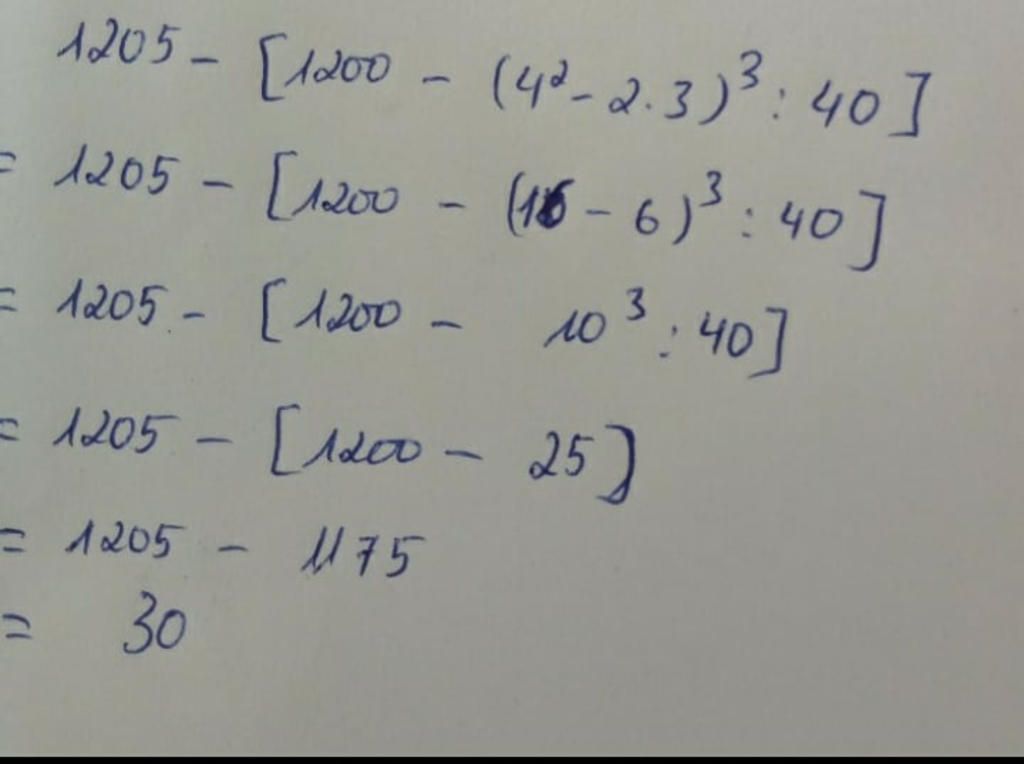 1205 - [1200 - (4² - 2.3)³ : 40]
= 1205 - [1200 - (16 - 6)³ : 40]
= 1205 - [1200 - 10³ : 40]
= 1205 - [1200 - 25]
= 1205 - 1175
= 30